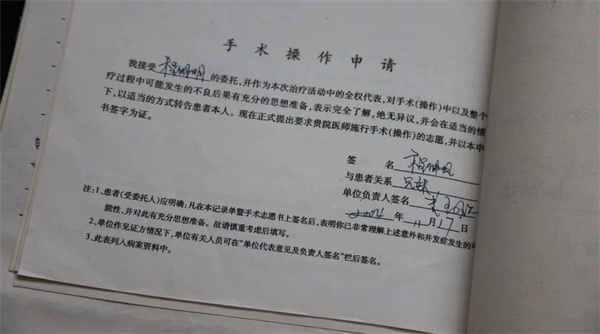 手术操作申请
我接受 的委托，并作为本次治疗活动中的全权代表，对手术(操作)中以及整个
疗过程中可能发生的不良后果有充分的思想准备，表示完全了解，绝无异议，并会在适当的情
下，以适当的方式转告患者本人。现在正式提出要求贵院医师施行手术(操作)的志愿，并以本申
书签字为证。
签 名
与患者关系 兄妹
单位负责人签名
年 11 月 17 日
注:1、患者(受委托人)应明确:凡在本记录单暨手术志愿书上签名后，表明你已非常理解上述意外和并发症发生的可
能性，并对此有充分思想准备。故请慎重考虑后填写。
2、单位作见证方情况下，单位有关人员可在“单位代表意见及负责人签名”栏后签名。
3、此表列入病案资料中。